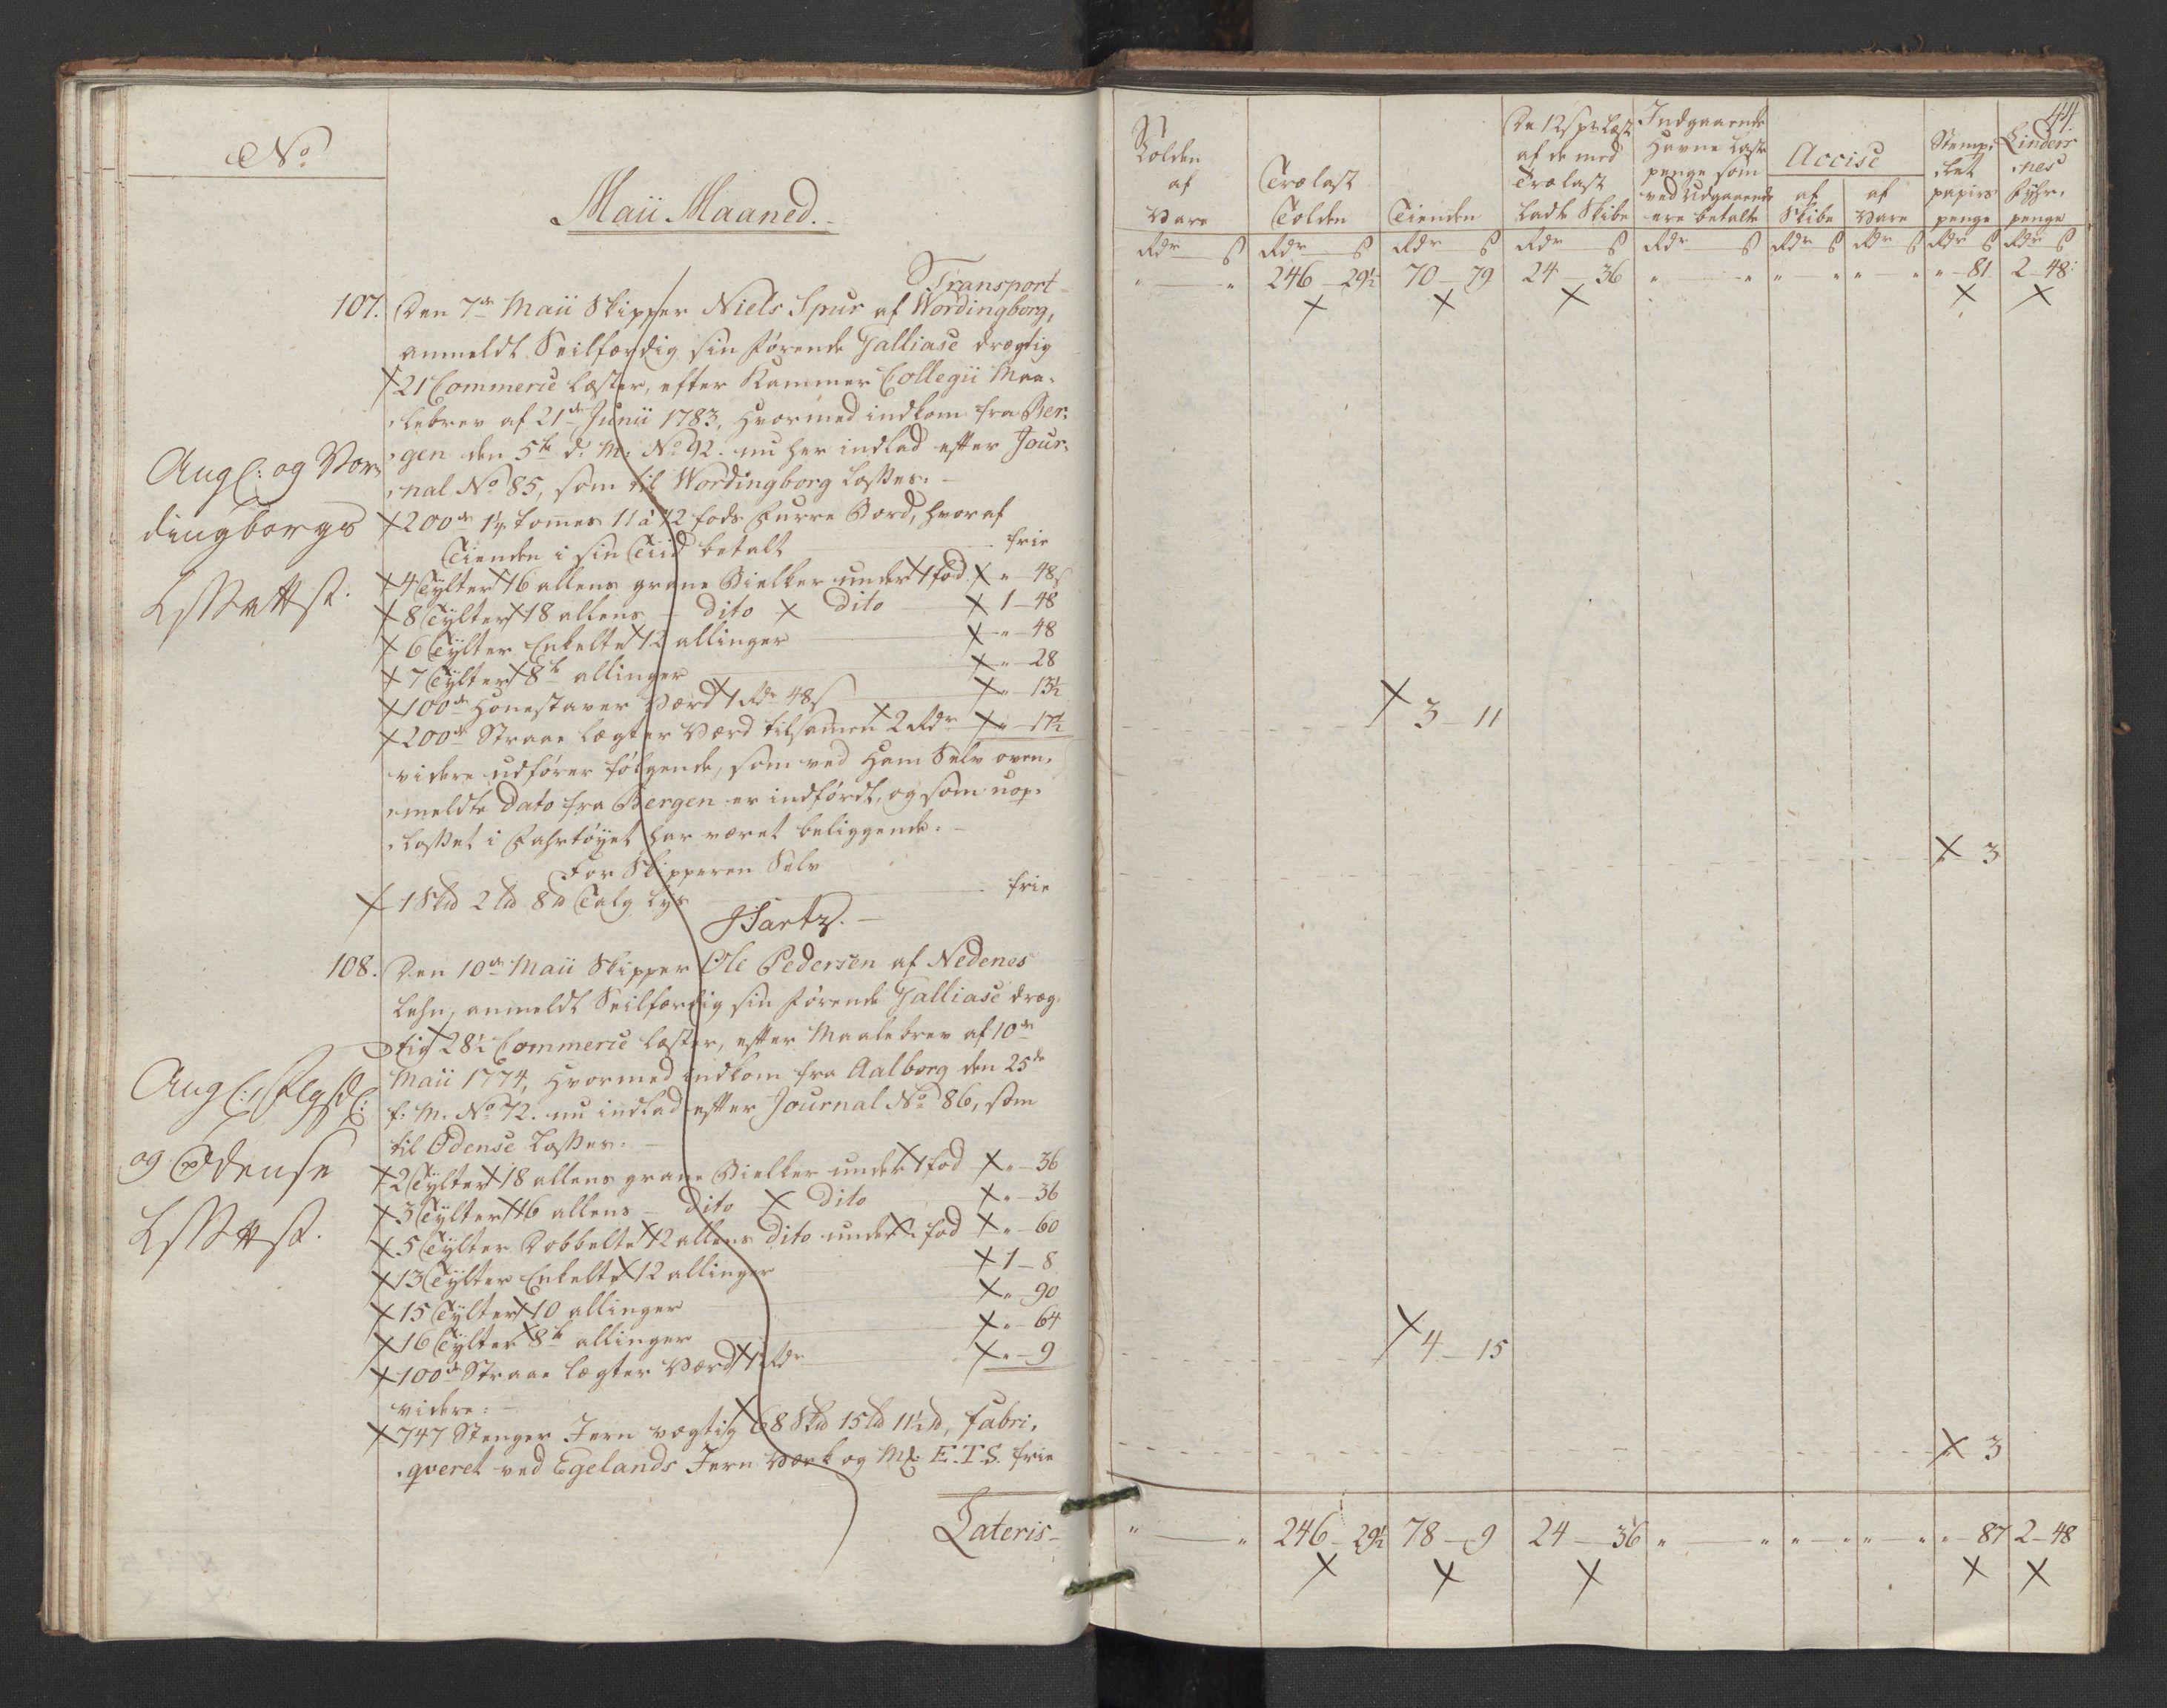 No
Maii Maaned.
Transport
107. Den 7de Maii Skipper Niels Spur af Wordingborg,
anmeldt Seilfærdig sin førende Galliase drægtig
21 Commerce Læster, efter Kammer Collegii Maa-
lebrev af 21de Junii 1783, hvormed indkom fra Ber-
gen den 5te d. M. No 92. nu her indlad efter Jour-
nal No 85, som til Wordingborg Losses.
200de 1¼ tommes 11 à 12 fods Furre Bord, hvoraf
Tienden i sin Tiid betalt frie
4 Tylter 16 allens grane Bielker under 1 fod " 48s
8 Tylter 18 allens dito dito 1 - 48
6 Tylter Enkelte 12 allinger " 48
7 Tylter 8te allinger " 28
100de Honestaver Værd 1 Rdr 48s " 13½
200de Straae Lægter Værd tilsamen 2 Rdr " 17½
videre udfører følgende, som ved Ham Selv oven-
meldte Dato fra Bergen er indført, og som uop-
losset i Fahrtøyet har været beliggende.
For Skipperen Selv
1 Skd 2 Ld 8 d Talg Lys frie
Hartz.
Angl: og Vor-
dingborgs
108. Den 10de Maii Skipper Ole Pedersen af Nedenes
Lehn, anmeldt Seilfærdig sin førende Galliase dræg-
tig 28½ Commerce Læster, efter Maalebrev af 10de
Maii 1774, hvormed indkom fra Aalborg den 25de
f. M. No 72. nu indlad efter Journal No 86, som
til Odense Losses.
2 Tylter 18 allens grane Bielker under 1 fod " 36
3 Tylter 16 allens dito dito " 36
5 Tylter Dobbelte 12 allens dito under 1 fod " 60
13 Tylter Enkelte 12 allinger 1 - 8
15 Tylter 10 allinger " 90
16 Tylter 8te allinger " 64
100de Straae Lægter Værd 1 Rdr " 9
videre:
747 Stenger Jern vegtig 68 Skd 15 Ld 11½ d, fabri-
qveret ved Egelands Jern Værk og Mk: E.T.S. frie
Angl:
og Odense
Lateris
44.
Tolden af Vare
Trælast Tolden
Tienden
De 12 s pr Læst af de med Trælast Ladte Skibe
Indgaaende Havne Laste penge som ved Udgaaende ere betalte
Accise
af Skibe
af Vare
Stemp-let papiirs penge
Linders-nes Fyhr-penge
Rdr s Rdr s Rdr s Rdr s Rdr s Rdr s Rdr s Rdr s Rdr s
" " 246 - 29½ 70 - 79 24 - 36 " " " " " " " 81 2 - 48
3 - 11
3
4 - 15
3
" " 246 - 29½ 78 - 9 24 - 36 " " " " " " " 87 2 - 48